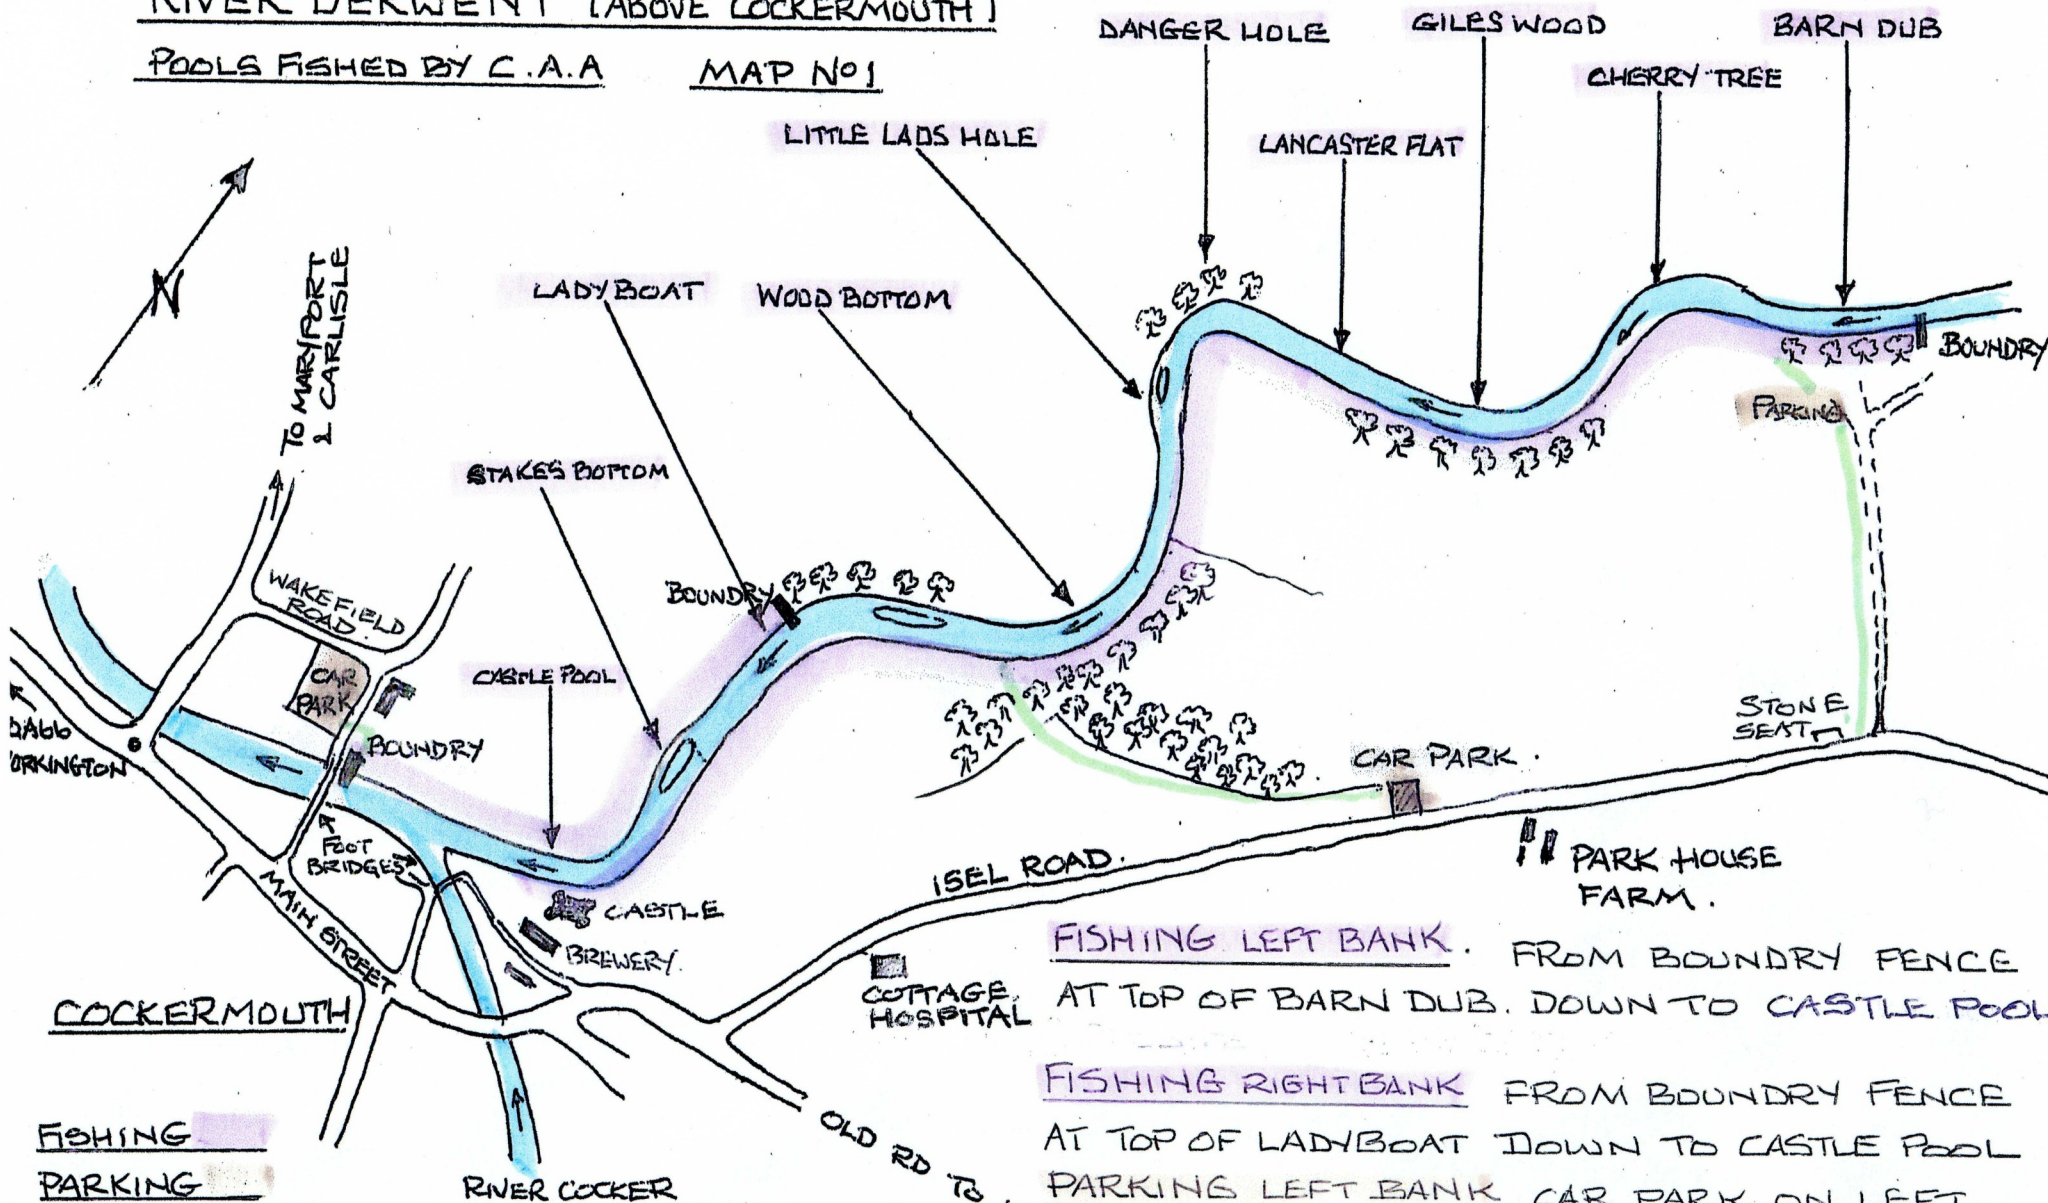 RIVER DERWENT (ABOVE COCKERMOUTH)
POOLS FISHED BY C.A.A MAP No1
DANGER HOLE
GILES WOOD
BARN DUB
CHERRY TREE
LITTLE LADS HOLE
LANCASTER FLAT
N
TO MARYPORT
& CARLISLE
LADYBOAT
WOOD BOTTOM
BOUNDRY
PARKING
STAKES BOTTOM
BOUNDRY
WAKEFIELD
ROAD
CASTLE POOL
CAR
PARK
BOUNDRY
STONE
SEAT
CAR PARK.
FOOT
BRIDGES
ISEL ROAD.
PARK HOUSE
FARM.
MAIN STREET
CASTLE
BREWERY.
COTTAGE
HOSPITAL
COCKERMOUTH
RIVER COCKER
OLD RD TO
FISHING
PARKING
FISHING LEFT BANK. FROM BOUNDRY FENCE
AT TOP OF BARN DUB. DOWN TO CASTLE POOL
FISHING RIGHT BANK FROM BOUNDRY FENCE
AT TOP OF LADYBOAT DOWN TO CASTLE POOL
PARKING LEFT BANK CAR PARK ON LEFT